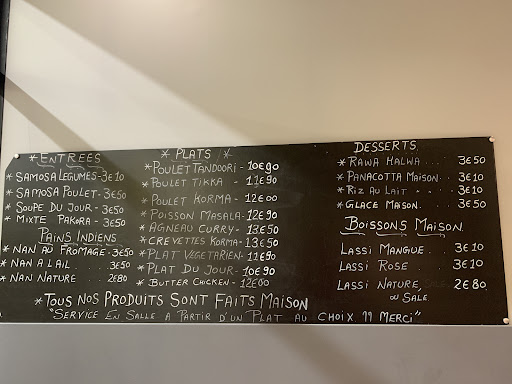 * ENTRÉES
* SAMOSA LEGUMES - 3€10
* SAMOSA POULET - 3€50
* SOUPE DU JOUR - 3€50
* MIXTE PAKORA - 3€50
PAINS INDIENS
* NAN AU FROMAGE - 3€50
* NAN A L AIL ... 3€50
* NAN NATURE 2€80
* PLATS *
* POULET TANDOORI - 10€90
* POULET TIKKA - 11€90
* POULET KORMA - 12€00
* POISSON MASALA - 12€90
* AGNEAU CURRY - 13€50
* CREVETTES KORMA - 13€50
* PLAT VEGETARIEN - 11€90
* PLAT DU JOUR - 10€90
* BUTTER CHICKEN - 12€00
DESSERTS
* RAWA HALWA ... 3€50
* PANACOTTA MAISON : 3€10
* RIZ AU LAIT . . . 3€10
* GLACE MAISON. 3€50
BOISSONS MAISON
LASSI MANGUE . . 3€10
LASSI ROSE . . 3€10
LASSI NATURE, 2€80
OU SALE
* TOUS NOS PRODUITS SONT FAITS MAISON
"SERVICE EN SALLE A PARTIR D'UN PLAT AU CHOIX !! MERCI"